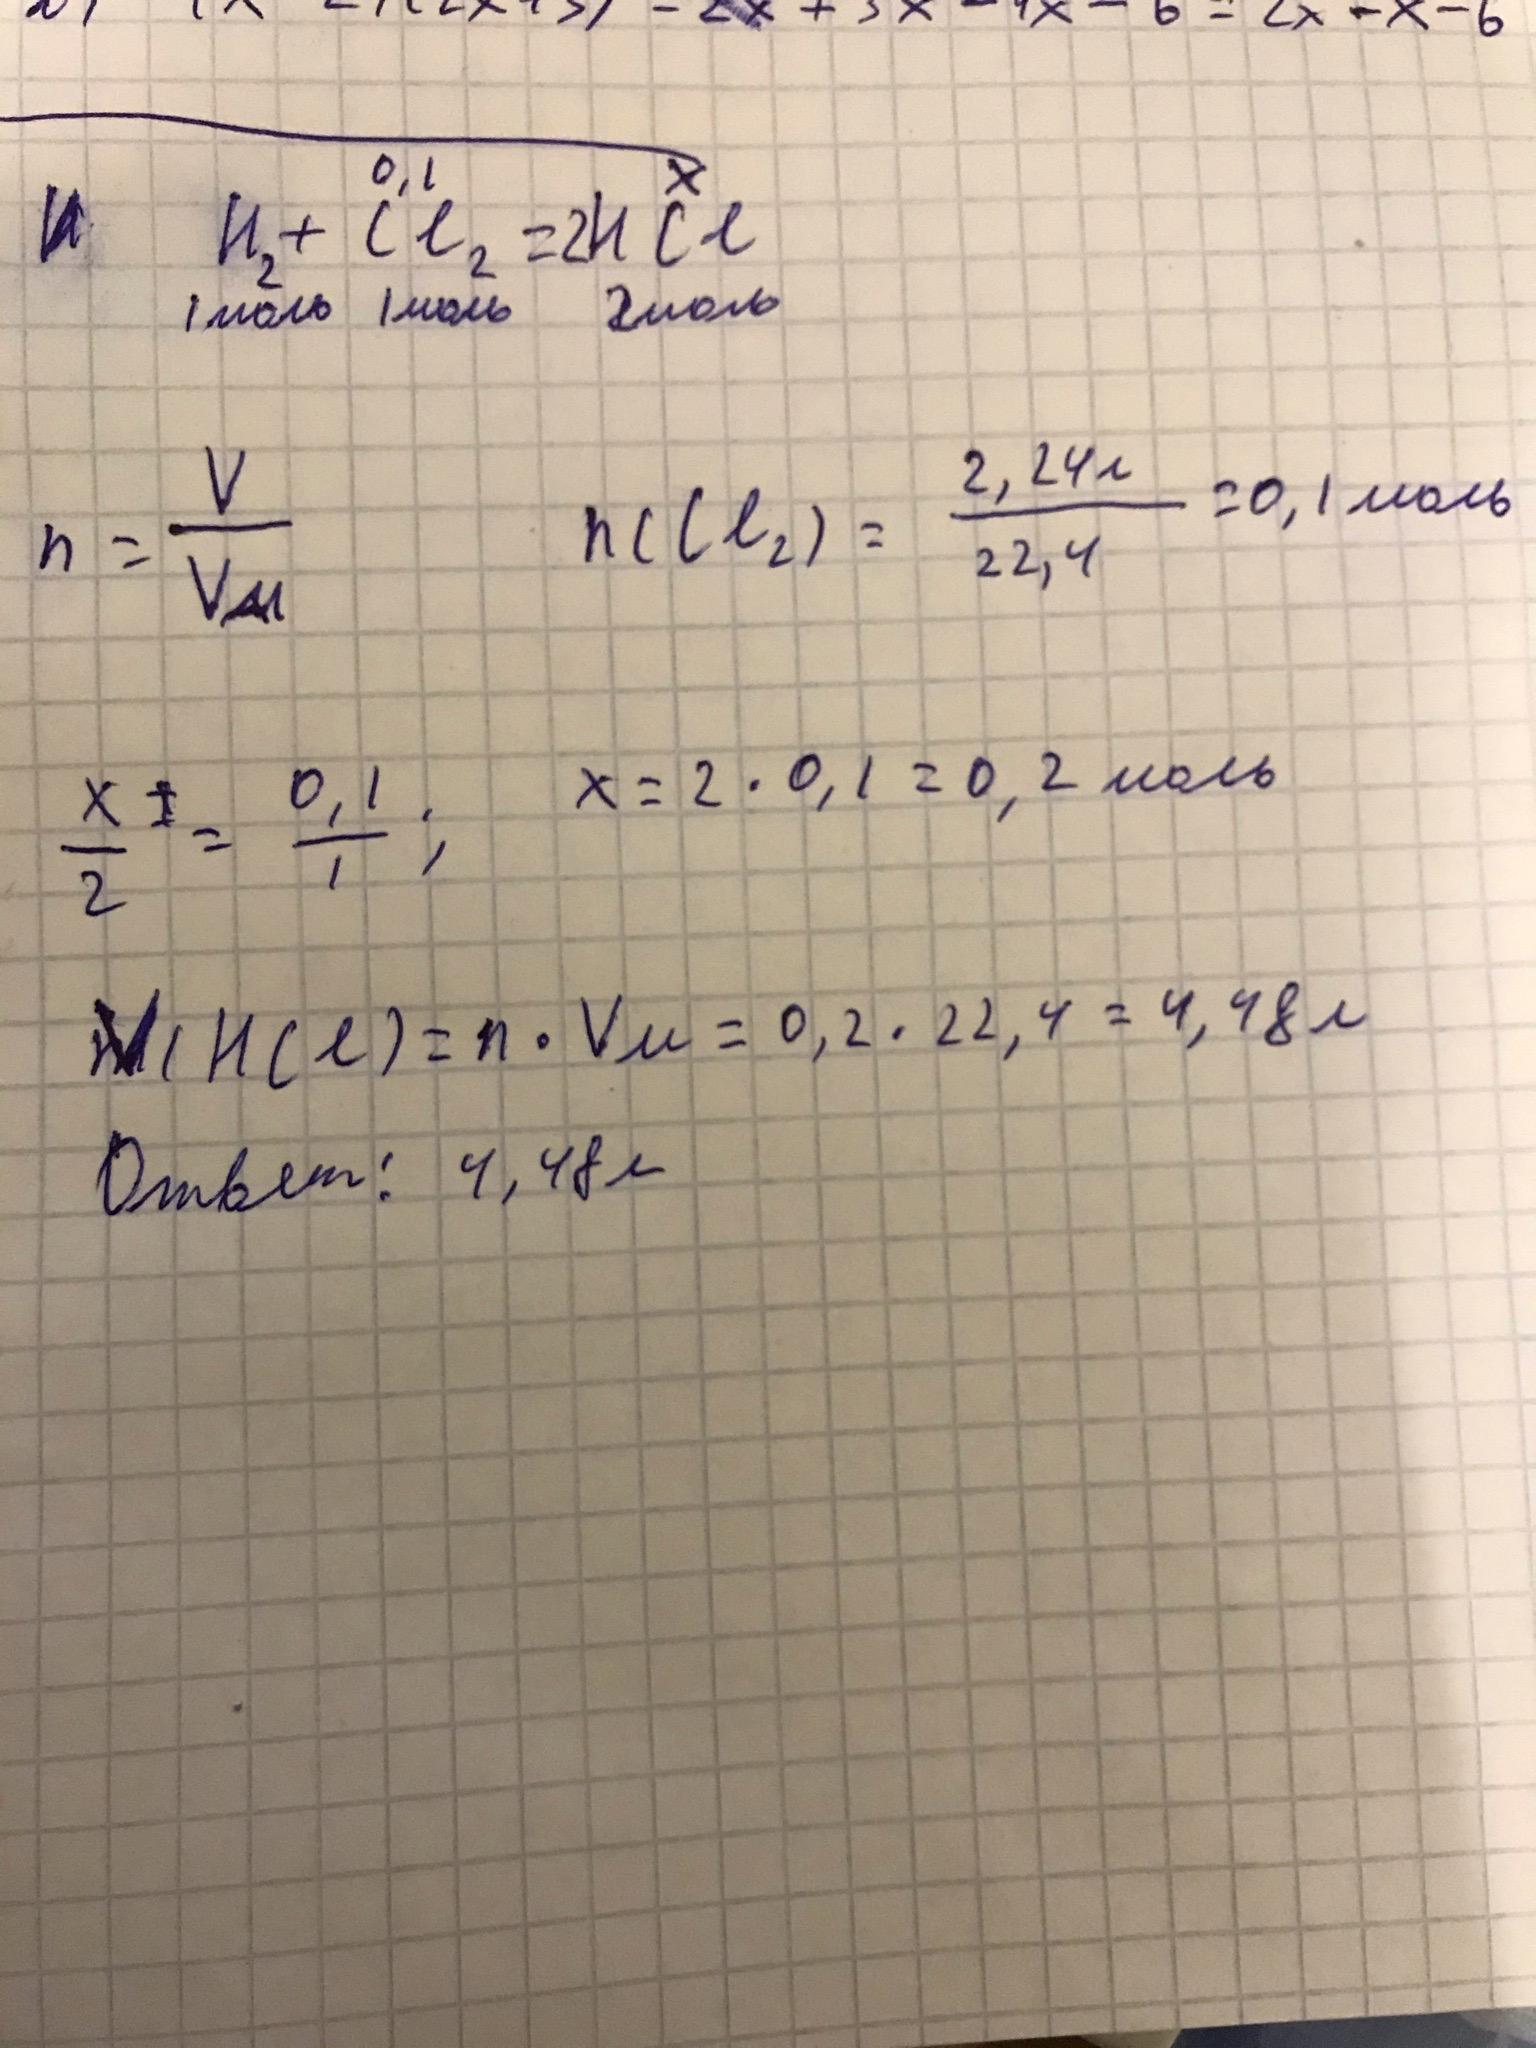 2) (x-2)(2x+3) = 2x + 3x - 4x - 6 = 2x - x - 6
0,1 x
H₂ + Cl₂ = 2HCl
1моль 1моль 2моль
n = V/Vм n(Cl₂) = 2,24л/22,4 = 0,1 моль
x/2 = 0,1/1 ; x = 2 · 0,1 = 0,2 моль
V(HCl) = n · Vм = 0,2 · 22,4 = 4,48 л
Ответ: 4,48 л